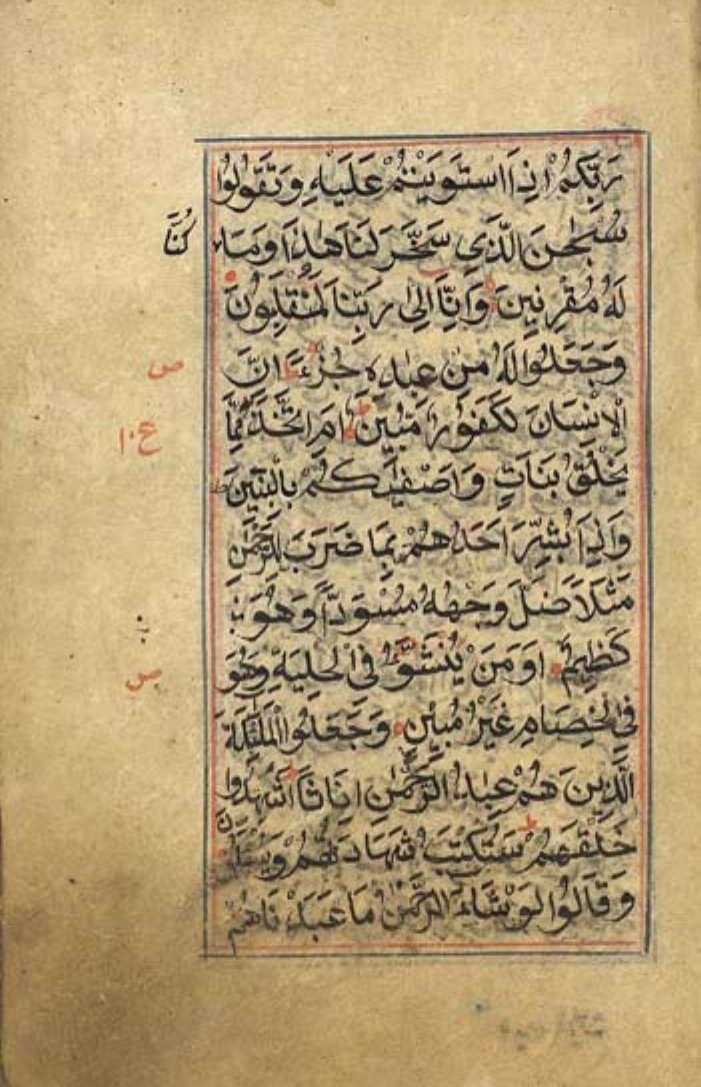 رَبِّكُمْ اِذَا اسْتَوَيْتُمْ عَلَيْهِ وَتَقُولُوا
سُبْحٰنَ الَّذِي سَخَّرَ لَنَا هٰذَا وَمَا
كُنَّا
لَهُ مُقْرِنِينَ وَاِنَّا اِلٰى رَبِّنَا لَمُنْقَلِبُونَ
وَجَعَلُوا لَهُ مِنْ عِبَادِهِ جُزْءًا اِنَّ
ص
الْاِنْسَانَ لَكَفُورٌ مُبِينٌ اَمِ اتَّخَذَ مِمَّا
ع ١٠
يَخْلُقُ بَنَاتٍ وَاَصْفٰيكُمْ بِالْبَنِينَ
وَاِذَا بُشِّرَ اَحَدُهُمْ بِمَا ضَرَبَ لِلرَّحْمٰنِ
مَثَلًا ظَلَّ وَجْهُهُ مُسْوَدًّا وَهُوَ
كَظِيمٌ اَوَمَنْ يُنَشَّؤُ فِي الْحِلْيَةِ وَهُوَ
ص
فِي الْخِصَامِ غَيْرُ مُبِينٍ وَجَعَلُوا الْمَلٰئِكَةَ
الَّذِينَ هُمْ عِبٰدُ الرَّحْمٰنِ اِنَاثًا اَشَهِدُوا
خَلْقَهُمْ سَتُكْتَبُ شَهَادَتُهُمْ
وَقَالُوا لَوْ شَاءَ الرَّحْمٰنُ مَا عَبَدْنَاهُمْ